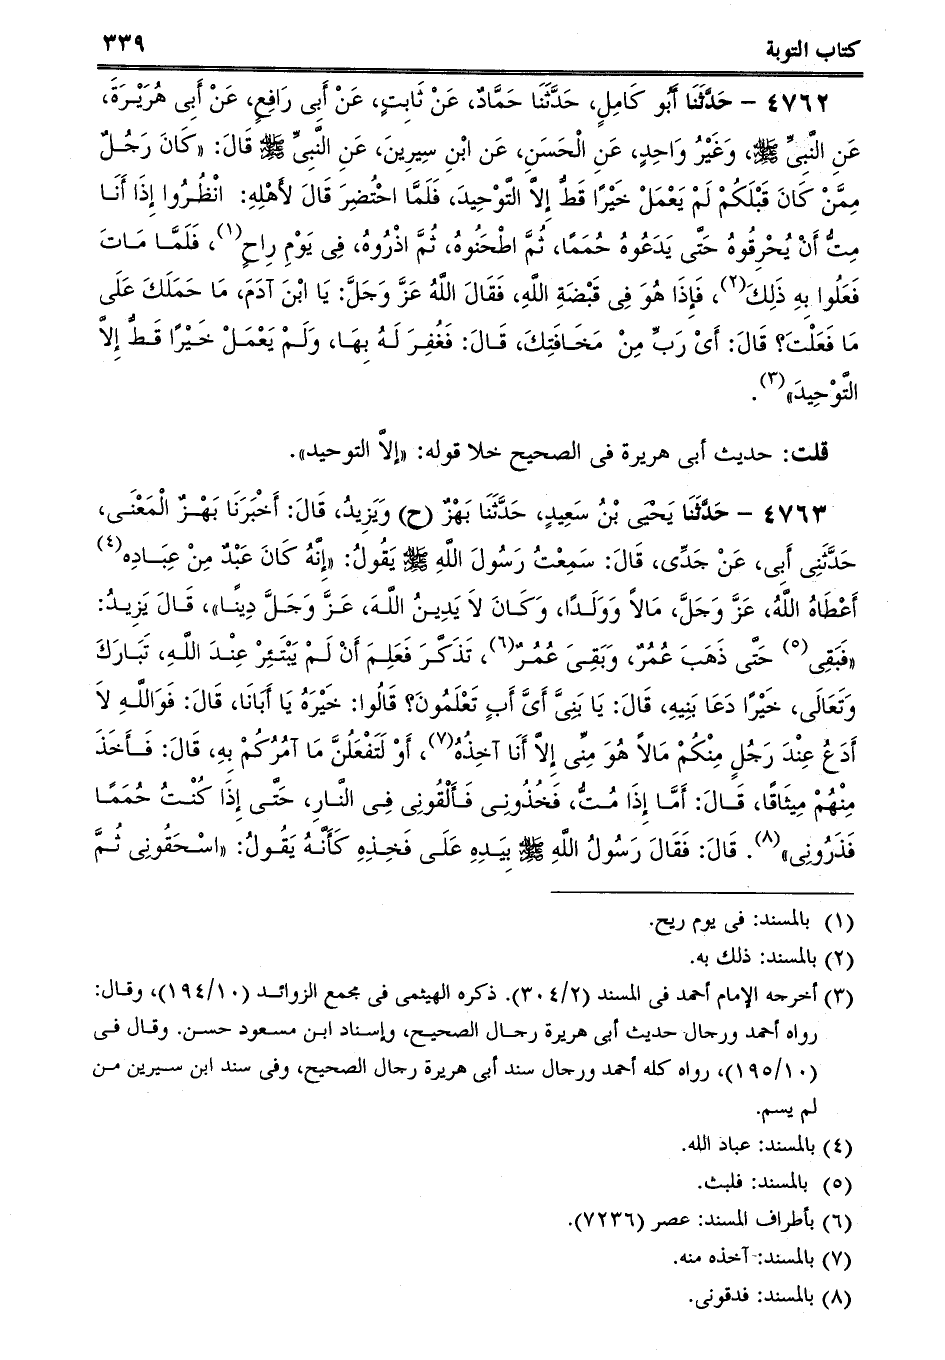 كتاب التوبة ٣٣٩
٤٧٦٢ – حَدَّثَنَا أَبُو كَامِلٍ، حَدَّثَنَا حَمَّادٌ، عَنْ ثَابِتٍ، عَنْ أَبِى رَافِعٍ، عَنْ أَبِى هُرَيْرَةَ،
عَنِ النَّبِىِّ ﷺ، وَغَيْرُ وَاحِدٍ، عَنِ الْحَسَنِ، عَن ابْنِ سِيرِينَ، عَنِ النَّبِىِّ ﷺ قَالَ: «كَانَ رَجُلٌ
مِمَّنْ كَانَ قَبْلَكُمْ لَمْ يَعْمَلْ خَيْرًا قَطُّ إِلاَّ التَّوْحِيدَ، فَلَمَّا احْتُضِرَ قَالَ لأَهْلِهِ: انْظُرُوا إِذَا أَنَا
مِتُّ أَنْ يُحْرِقُوهُ حَتَّى يَدَعُوهُ حُمَمًا، ثُمَّ اطْحَنُوهُ، ثُمَّ اذْرُوهُ، فِى يَوْمِ رِاحٍ(١)، فَلَمَّا مَاتَ
فَعَلُوا بِهِ ذَلِكَ(٢)، فَإِذَا هُوَ فِى قَبْضَةِ اللَّهِ، فَقَالَ اللَّهُ عَزَّ وَجَلَّ: يَا ابْنَ آدَمَ، مَا حَمَلَكَ عَلَى
مَا فَعَلْتَ؟ قَالَ: أَىْ رَبِّ مِنْ مَخَافَتِكَ، قَالَ: فَغُفِرَ لَهُ بِهَا، وَلَمْ يَعْمَلْ خَيْرًا قَطُّ إِلاَّ
التَّوْحِيدَ»(٣).
قلت: حديث أبى هريرة فى الصحيح خلا قوله: «إلاَّ التوحيد».
٤٧٦٣ – حَدَّثَنَا يَحْيَى بْنُ سَعِيدٍ، حَدَّثَنَا بَهْزٌ (ح) وَيَزِيدُ، قَالَ: أَخْبَرَنَا بَهْزٌ الْمَعْنَى،
حَدَّثَنِى أَبِى، عَنْ جَدِّى، قَالَ: سَمِعْتُ رَسُولَ اللَّهِ ﷺ يَقُولُ: «إِنَّهُ كَانَ عَبْدٌ مِنْ عِبَادِهِ(٤)
أَعْطَاهُ اللَّهُ، عَزَّ وَجَلَّ، مَالاً وَوَلَدًا، وَكَانَ لاَ يَدِينُ اللَّهَ، عَزَّ وَجَلَّ دِينًا»، قَالَ يَزِيدُ:
«فَبَقِى(٥) حَتَّى ذَهَبَ عُمُرٌ، وَبَقِىَ عُمُرٌ(٦)، تَذَكَّرَ فَعَلِمَ أَنْ لَمْ يَبْتَئِرْ عِنْدَ اللَّهِ، تَبَارَكَ
وَتَعَالَى، خَيْرًا دَعَا بَنِيهِ، قَالَ: يَا بَنِىَّ أَىَّ أَبٍ تَعْلَمُونَ؟ قَالُوا: خَيْرَهُ يَا أَبَانَا، قَالَ: فَوَاللَّهِ لاَ
أَدَعُ عِنْدَ رَجُلٍ مِنْكُمْ مَالاً هُوَ مِنِّى إِلاَّ أَنَا آخِذُهُ(٧)، أَوْ لَتَفْعَلُنَّ مَا آمُرُكُمْ بِهِ، قَالَ: فَأَخَذَ
مِنْهُمْ مِيثَاقًا، قَالَ: أَمَّا إِذَا مُتُّ، فَخُذُونِى فَأَلْقُونِى فِى النَّارِ، حَتَّى إِذَا كُنْتُ حُمَمًا
فَذَرُونِى»(٨). قَالَ: فَقَالَ رَسُولُ اللَّهِ ﷺ بِيَدِهِ عَلَى فَخِذِهِ كَأَنَّهُ يَقُولُ: «اسْحَقُونِى ثُمَّ
(١) بالمسند: فى يوم ريح.
(٢) بالمسند: ذلك به.
(٣) أخرجه الإمام أحمد فى المسند (٣٠٤/٢). ذكره الهيثمى فى مجمع الزوائد (١٩٤/١٠)، وقال:
رواه أحمد ورجال حديث أبى هريرة رجال الصحيح، وإسناد ابن مسعود حسن. وقال فى
(١٩٥/١٠)، رواه كله أحمد ورجال سند أبى هريرة رجال الصحيح، وفى سند ابن سيرين من
لم يسم.
(٤) بالمسند: عباد الله.
(٥) بالمسند: فلبث.
(٦) بأطراف المسند: عصر (٧٢٣٦).
(٧) بالمسند: آخذه منه.
(٨) بالمسند: فدقونى.